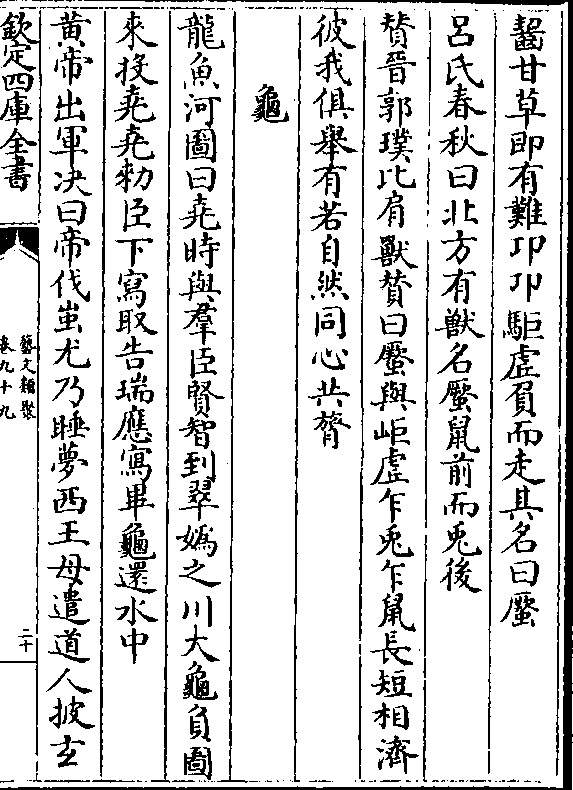 齧甘草即有難卭卭駏虚負而走其名曰蟨
吕氏春秋曰北方有獸名蟨鼠前而兎後
贊晉郭璞比肩獸贊曰蟨與岠虚乍兎乍鼠長短相濟
彼我俱舉有若自然同心共膂
龜
龍魚河圖曰堯時與羣臣賢智到翠媯之川大龜負圖
來投堯堯勑臣下寫取告瑞應寫畢龜還水中
黄帝出軍决曰帝伐蚩尤乃睡夢西王母遣道人披玄
欽定四庫全書
藝文類聚
卷九十九
二十